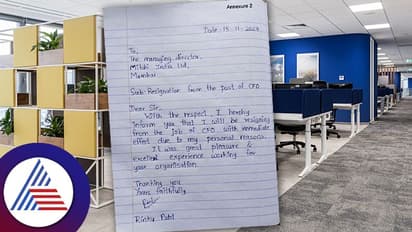 Annexure 2
Date: 15-11-2024
To,
The managing director.
Mitshi India Ltd,
Mumbai
Sub: Resignation from the post of CFO
Dear Sir,
With the respect, I hereby
inform you that I will be resigning
from the job of CFO with immediate
effect due to my personal reasons.
It was great pleasure &
excellent experience working for
your organisation.
Thanking you
Yours faithfully
Rinku Patel